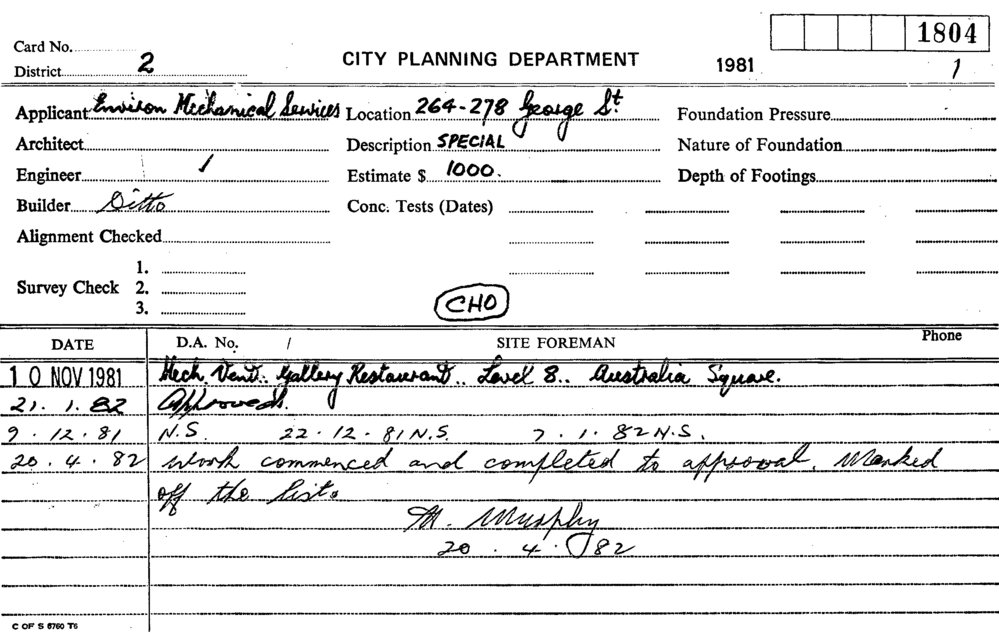 1804
Card No.
District 2 CITY PLANNING DEPARTMENT 1981 1
Applicant Environ Mechanical Services Location 264-278 George St. Foundation Pressure
Architect Description SPECIAL Nature of Foundation
Engineer Estimate $ 1000. Depth of Footings
Builder Ditto Conc. Tests (Dates)
Alignment Checked
1.
Survey Check 2.
3.
CHO
DATE D.A. No. / SITE FOREMAN Phone
10 NOV 1981 Mech. Vent.. Gallery Restaurant.. Level 8.. Australia Square.
21. 1. 82 Approved.
9. 12. 81 N.S. 22. 12. 81 N.S. 7. 1. 82 N.S.
20. 4. 82 Work commenced and completed to approval. Marked
off the list.
M. Murphy
20. 4. 82
C OF S 6760 T6